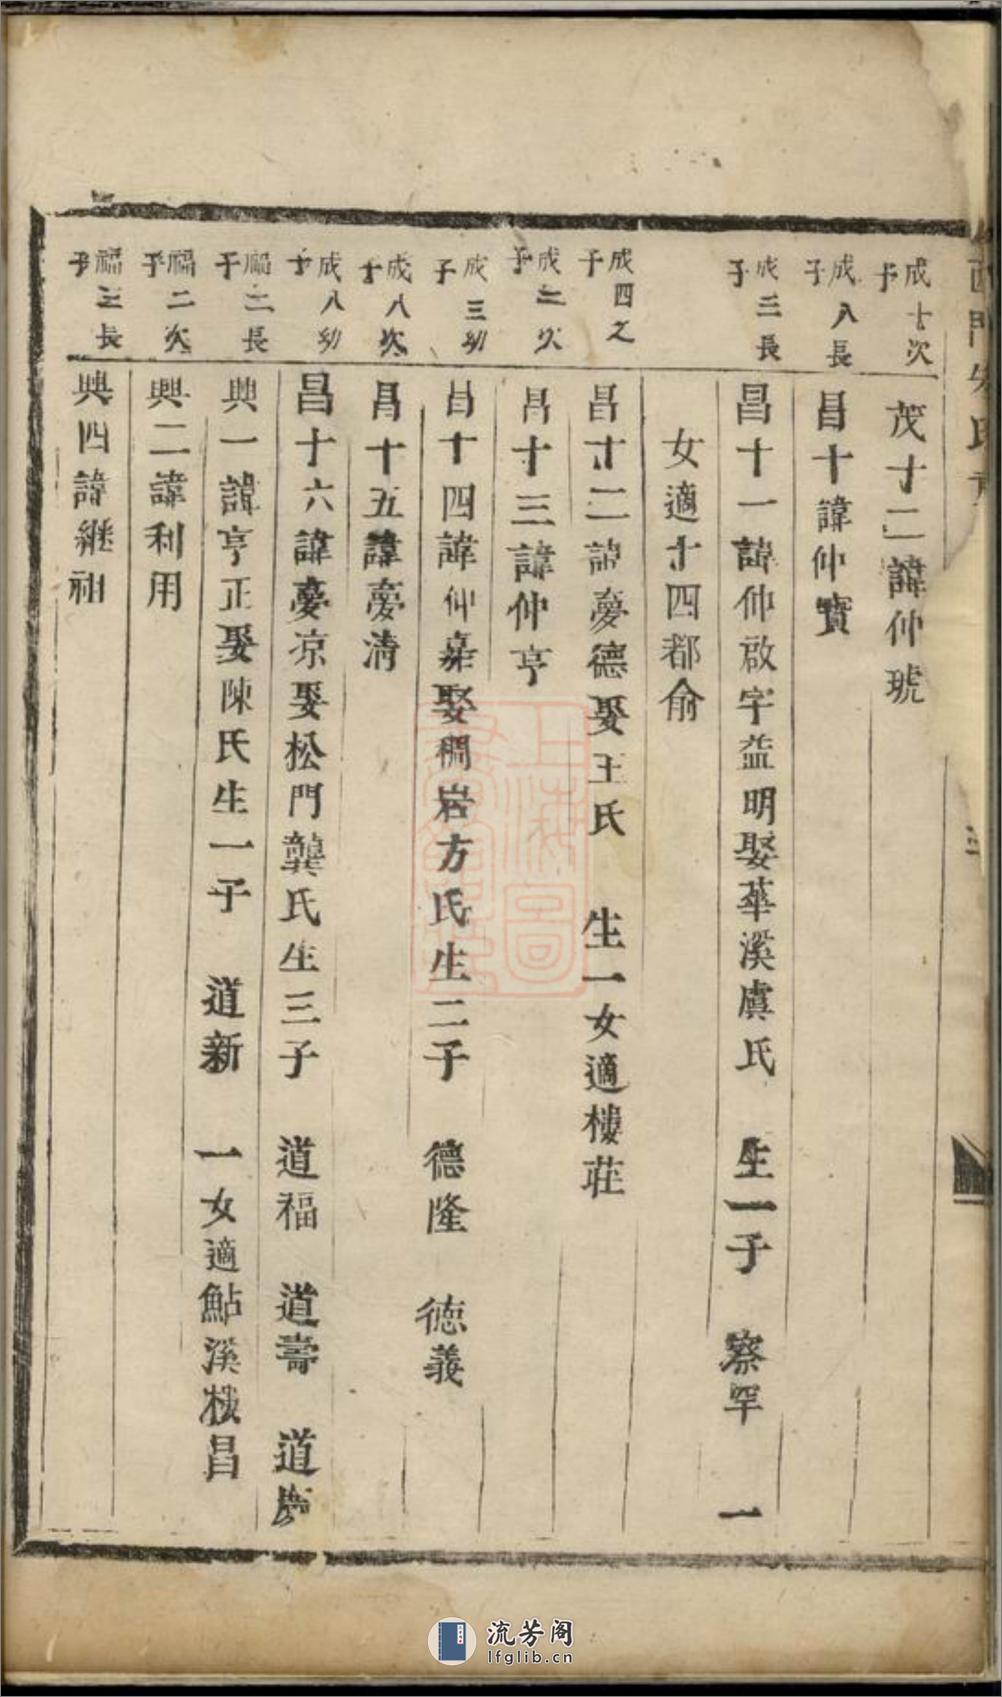 成十次子
茂十二諱仲琥
成八長子
昌十諱仲寶
成三長子
昌十一諱仲啟字益明娶華溪虞氏 生一子 察罕 一
女適十四都俞
成四之子
昌十二諱夢德娶王氏 生一女適樓莊
成三次子
昌十三諱仲亨
成三幼子
昌十四諱仲嘉娶稠岩方氏生二子 德隆 德義
成八次子
昌十五諱夢清
成八幼子
昌十六諱夢凉娶松門龔氏生三子 道福 道壽 道夢
福二長子
興一諱亨正娶陳氏生一子 道新 一女適鮎溪昌
福二次子
興二諱利用
福三長子
興四諱継祖
上海圖書館藏
流芳阁
lfglib.cn